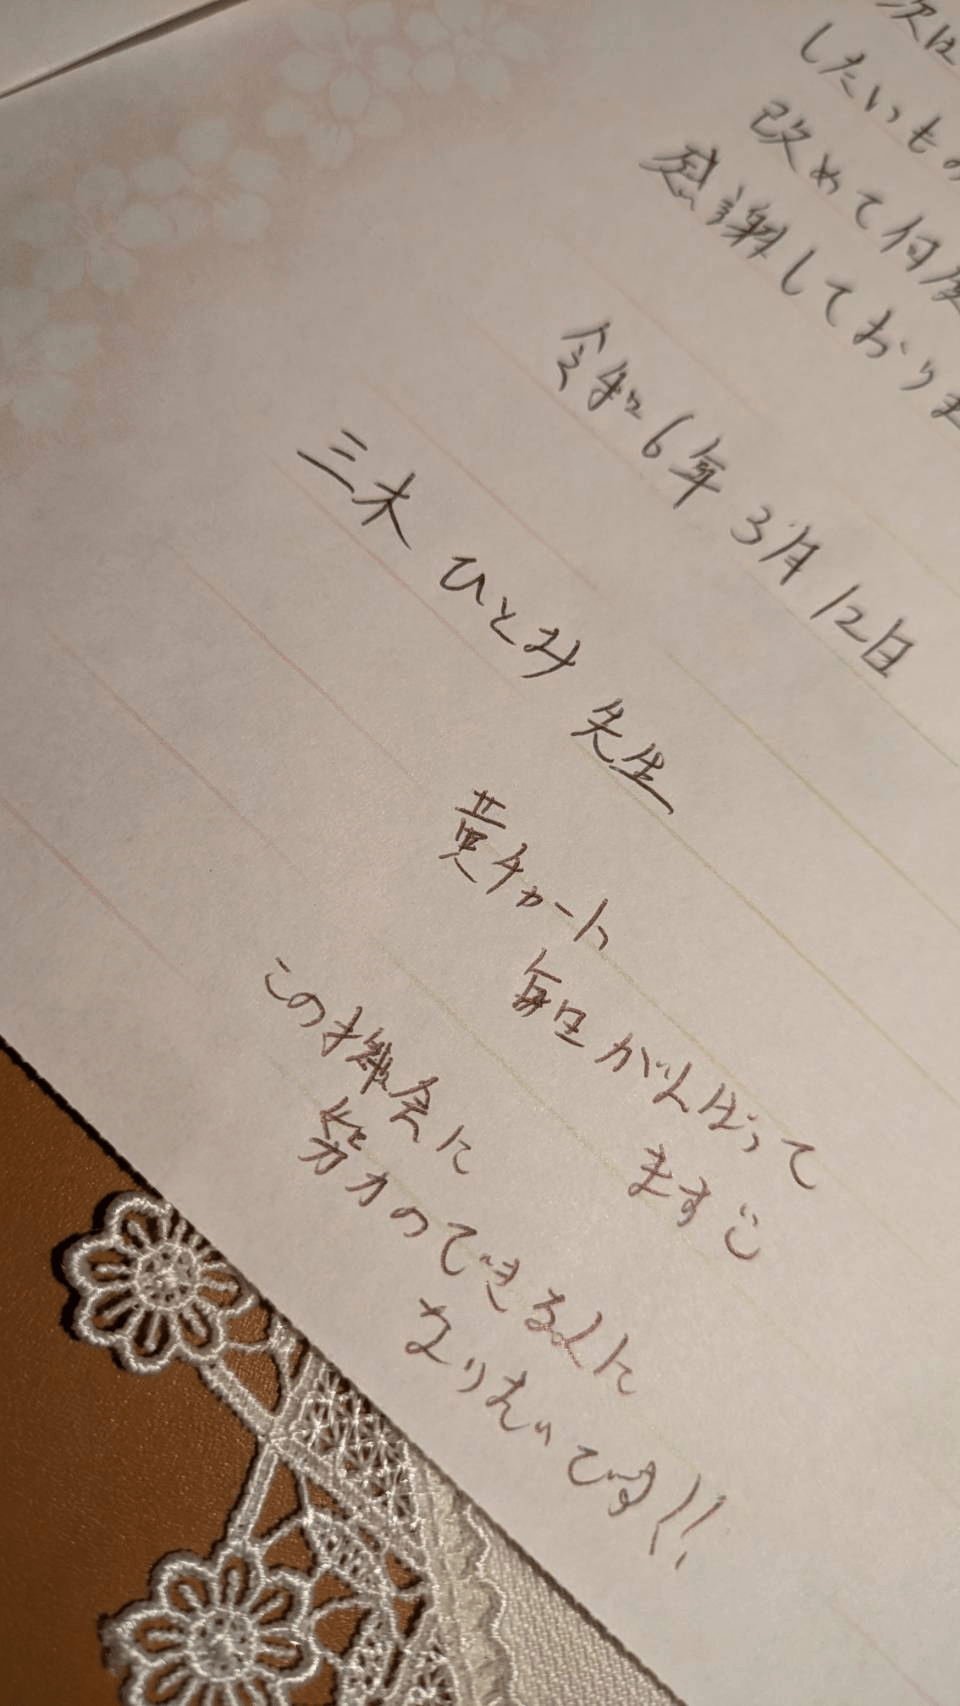 次は
したいもの
改めて何度
感謝しておりま
令和6年3月12日
三木 ひとみ 先生
黄チャート
毎日がんばって
ます
この機会に
努力のできる人に
なりたいです!!